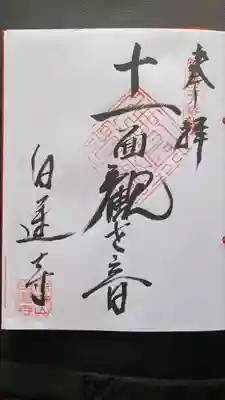 奉拝
十一面観世音
白蓮寺